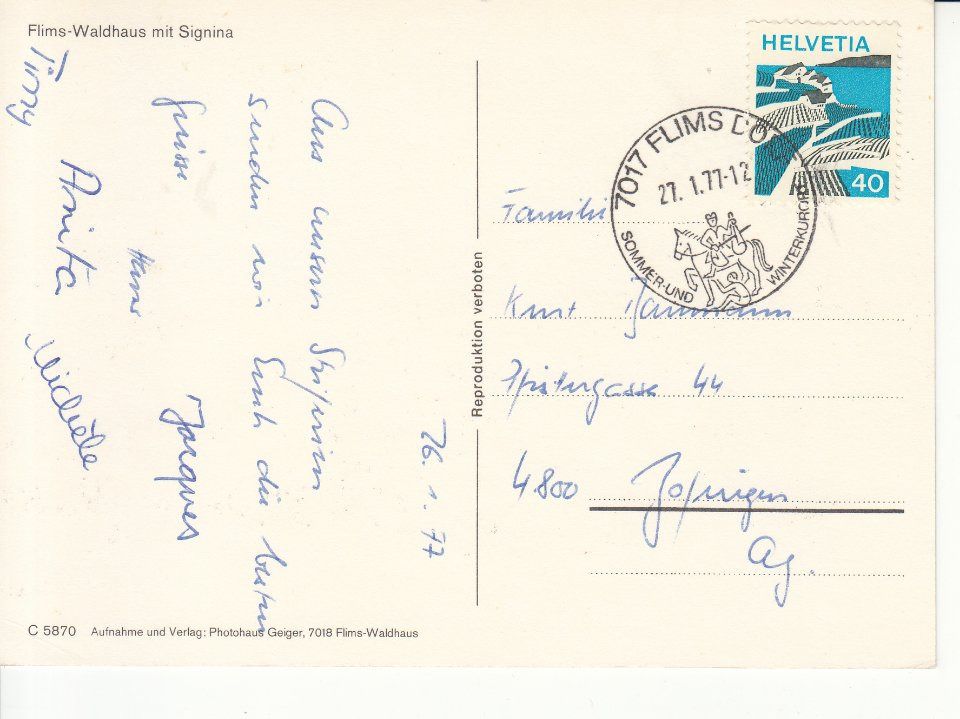 Flims-Waldhaus mit Signina
26. 1. 77
Aus unsern Skiferien
senden wir Euch die besten
Grüsse
Hanna
Jacques
Anita
Michèle
HELVETIA
40
7017 FLIMS DORF
27. 1. 77-12
SOMMER- UND WINTERKURORT
Familie
Kurt Baumann
44
4800 Zofingen
Ag.
Reproduktion verboten
C 5870 Aufnahme und Verlag: Photohaus Geiger, 7018 Flims-Waldhaus